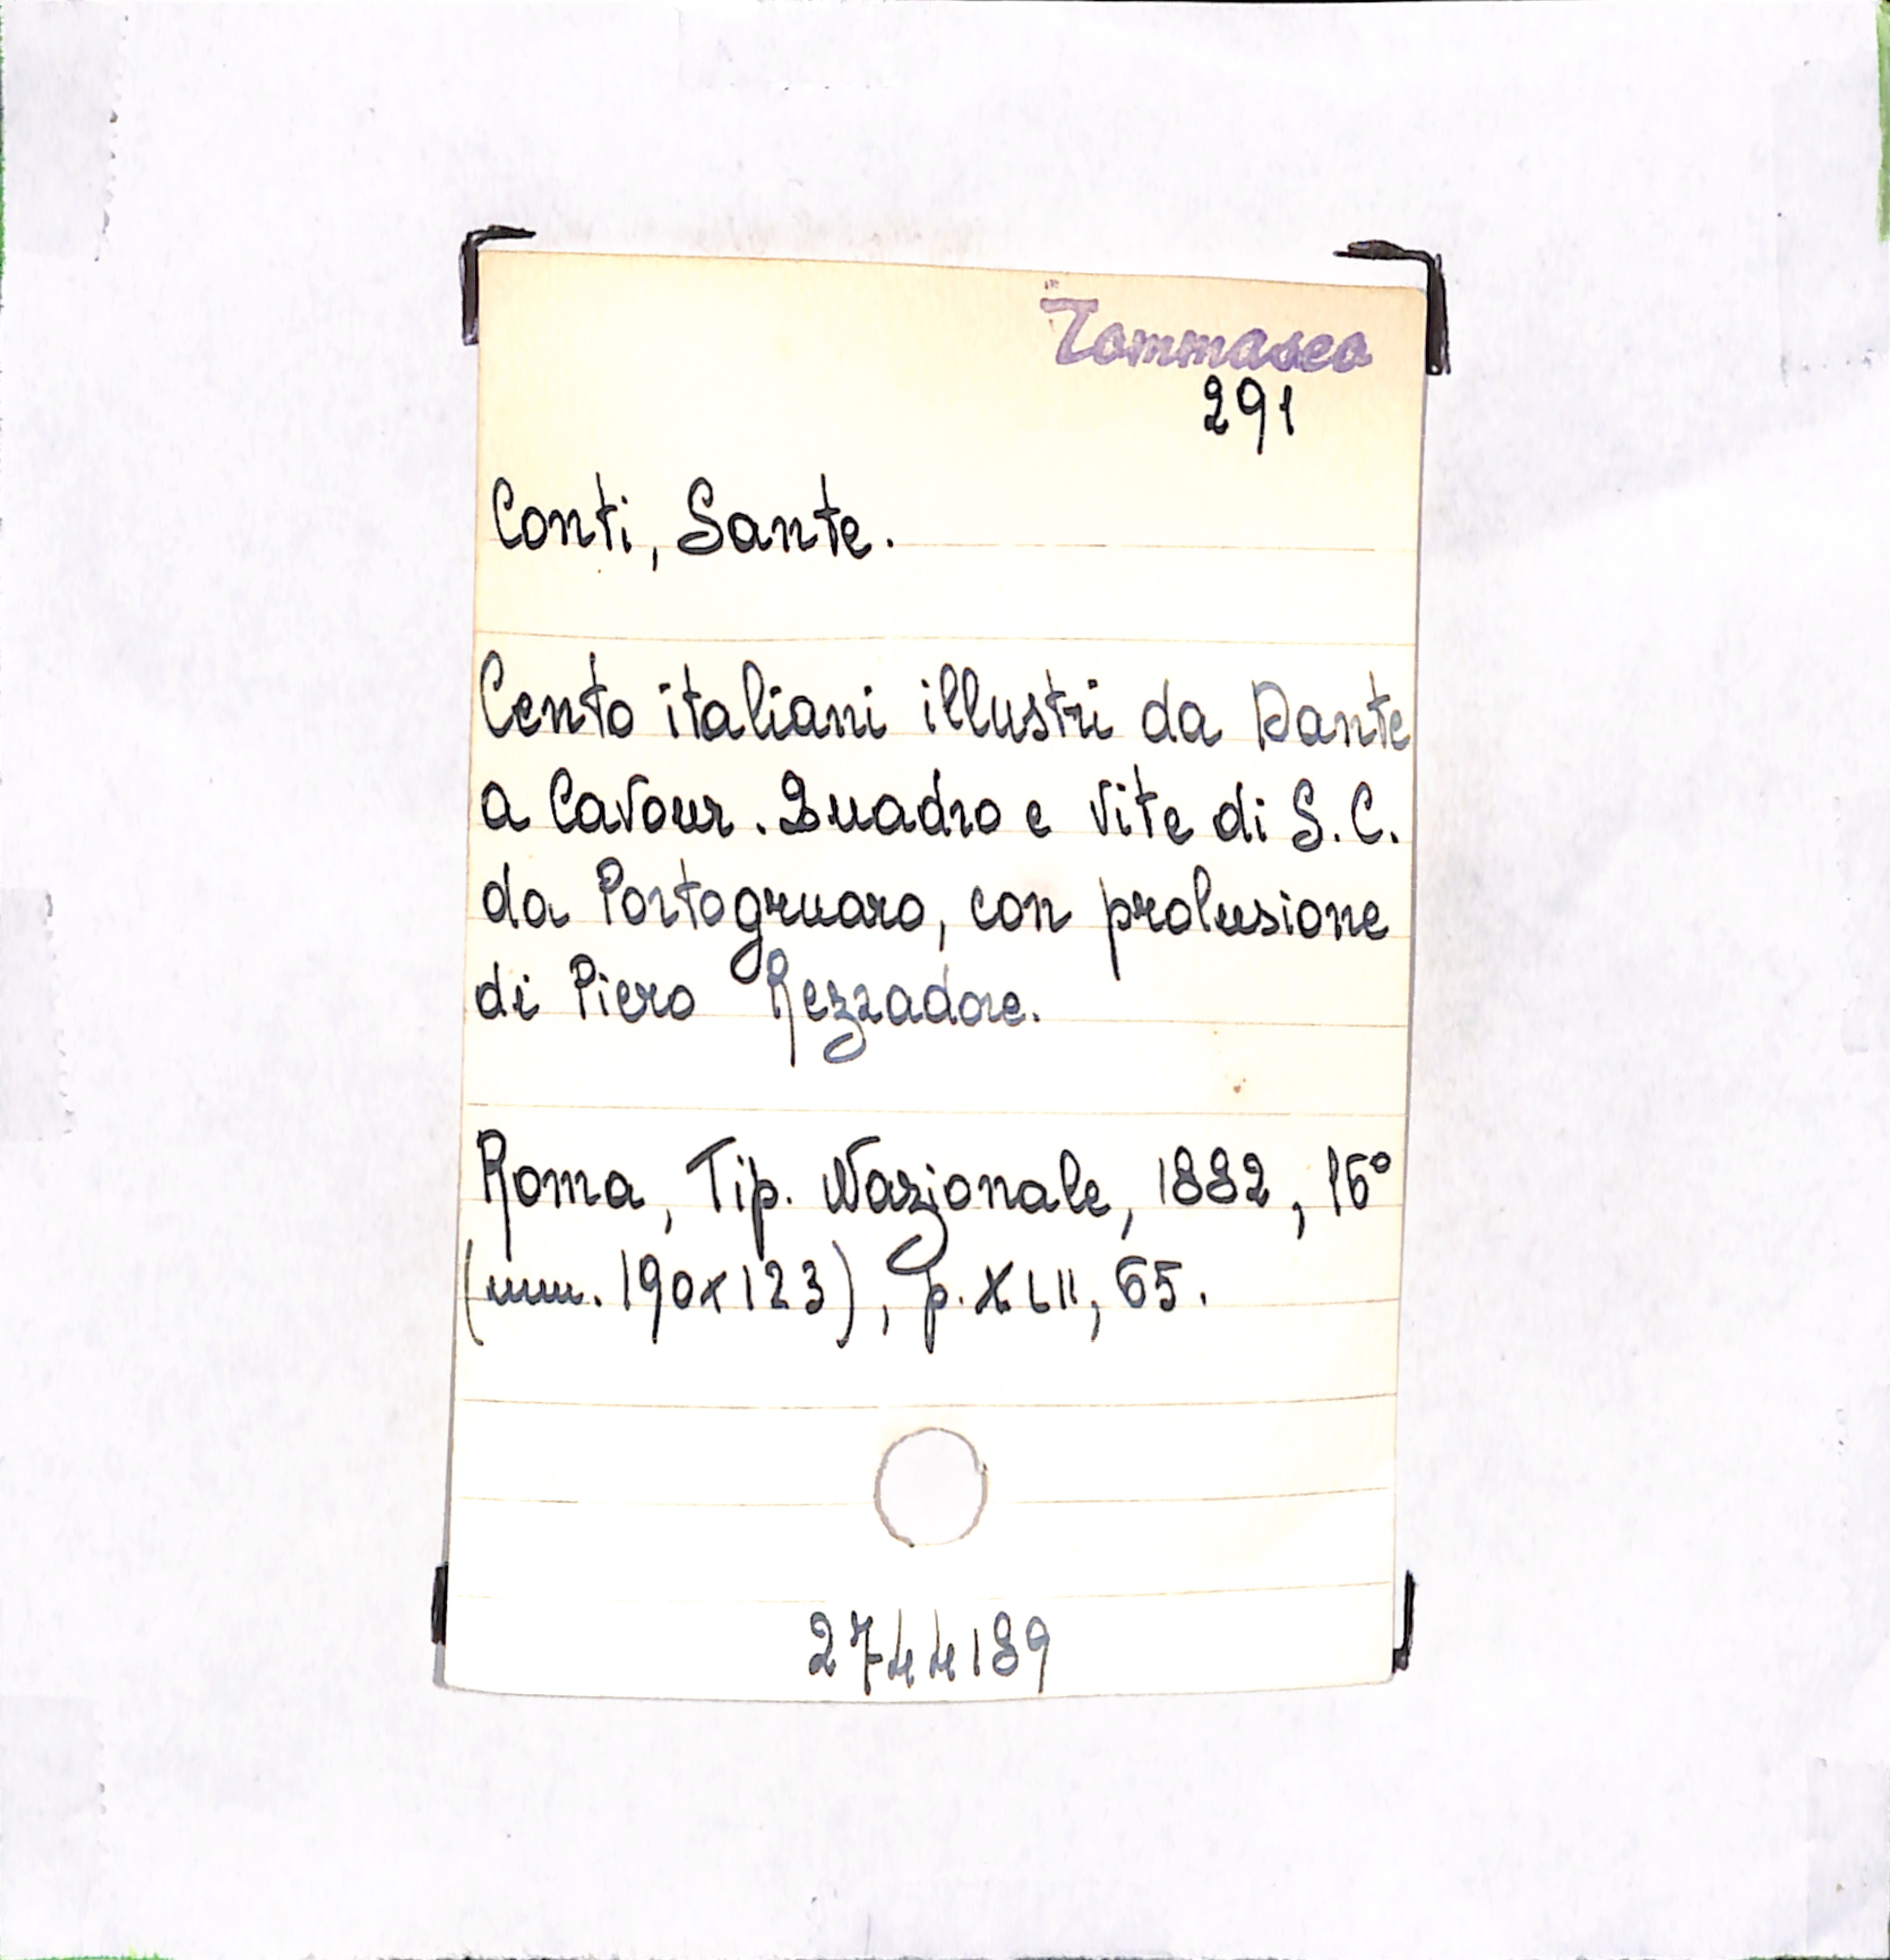 Tommaseo
291
Conti, Sante.
Cento italiani illustri da Dante
a Cavour. Quadro e vite di S. C.
da Portogruaro, con prolusione
di Piero Rezzadore.
Roma, Tip. Nazionale, 1882, 16°
(mm. 190x123), p. XLII, 65.
2744189